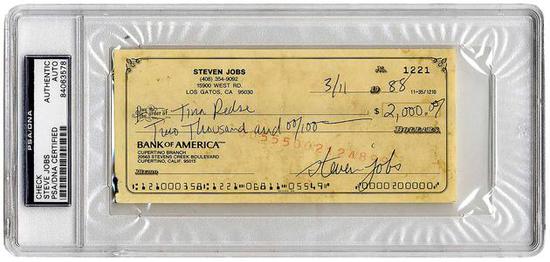 PSA/DNA
CHECK
STEVE JOBS
PSA/DNA CERTIFIED
AUTHENTIC
AUTO
84063578
STEVEN JOBS
(408) 354-9092
15900 WEST RD.
LOS GATOS, CA 95030
1221
3/11 1988
11-35/1210
order of Tina Redse $ 2,000.00
Two Thousand and 00/100 DOLLARS
BANK OF AMERICA
CUPERTINO BRANCH
20563 STEVENS CREEK BOULEVARD
CUPERTINO, CALIF. 95015
MEMO Steven Jobs
⑆121000358⑆1221⑈06811⑈05549⑈ ⑈0000200000⑈